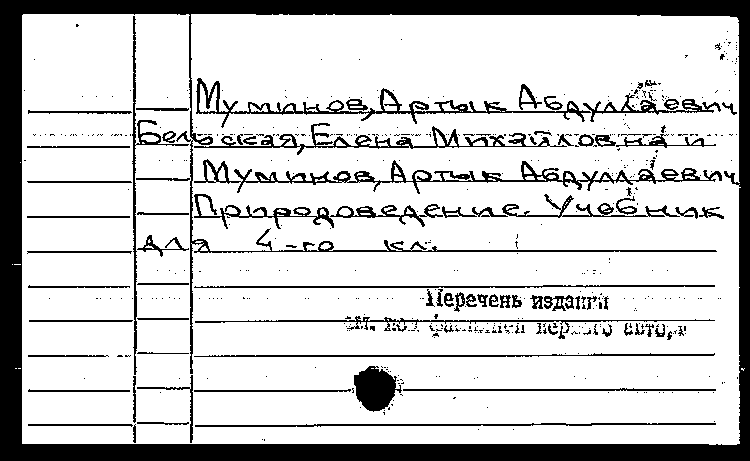 Муминов, Артык Абдуллаевич
Бельская, Елена Михайловна и
Муминов, Артык Абдуллаевич
Природоведение. Учебник
для 4-го кл.
Перечень изданий
см. под фамилией первого автора